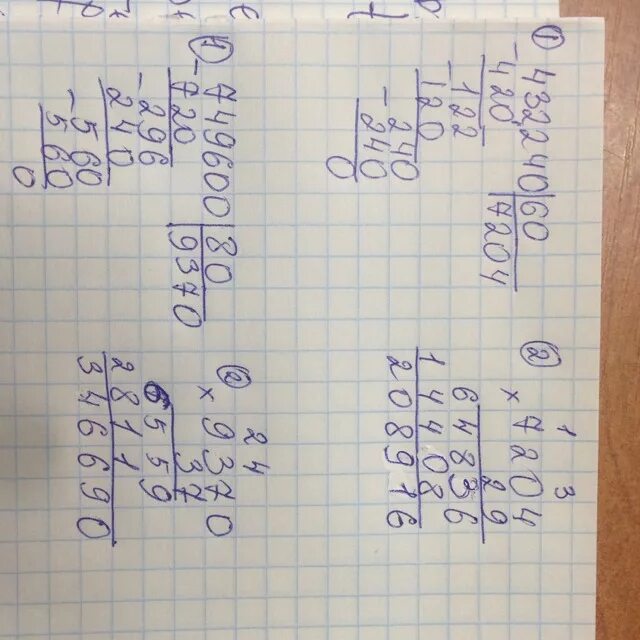 ① −432240|60
420 7204
−122
120
−240
240
0
1 3
② ×7204
29
64836
14408
208916
① −749600|80
720 9370
−296
240
−560
560
0
2 4
② ×9370
37
6559
2811
346690